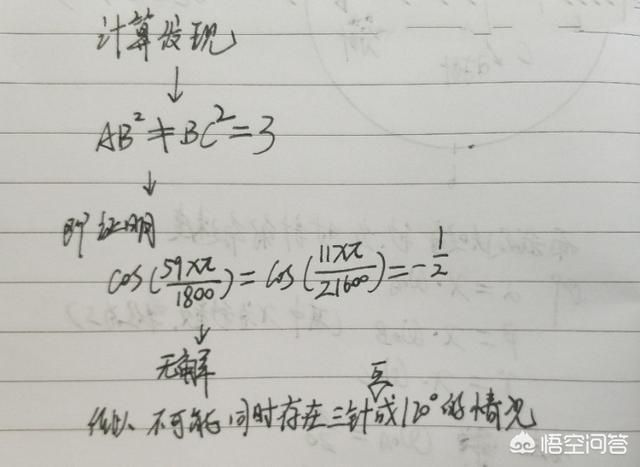 计算发现
↓
AB²≠BC²=3
↓
即证明
cos(59xπ/1800)=cos(11xπ/21600)=-1/2
↓
无解
所以、不可能同时存在三针互成120°的情况
悟空问答